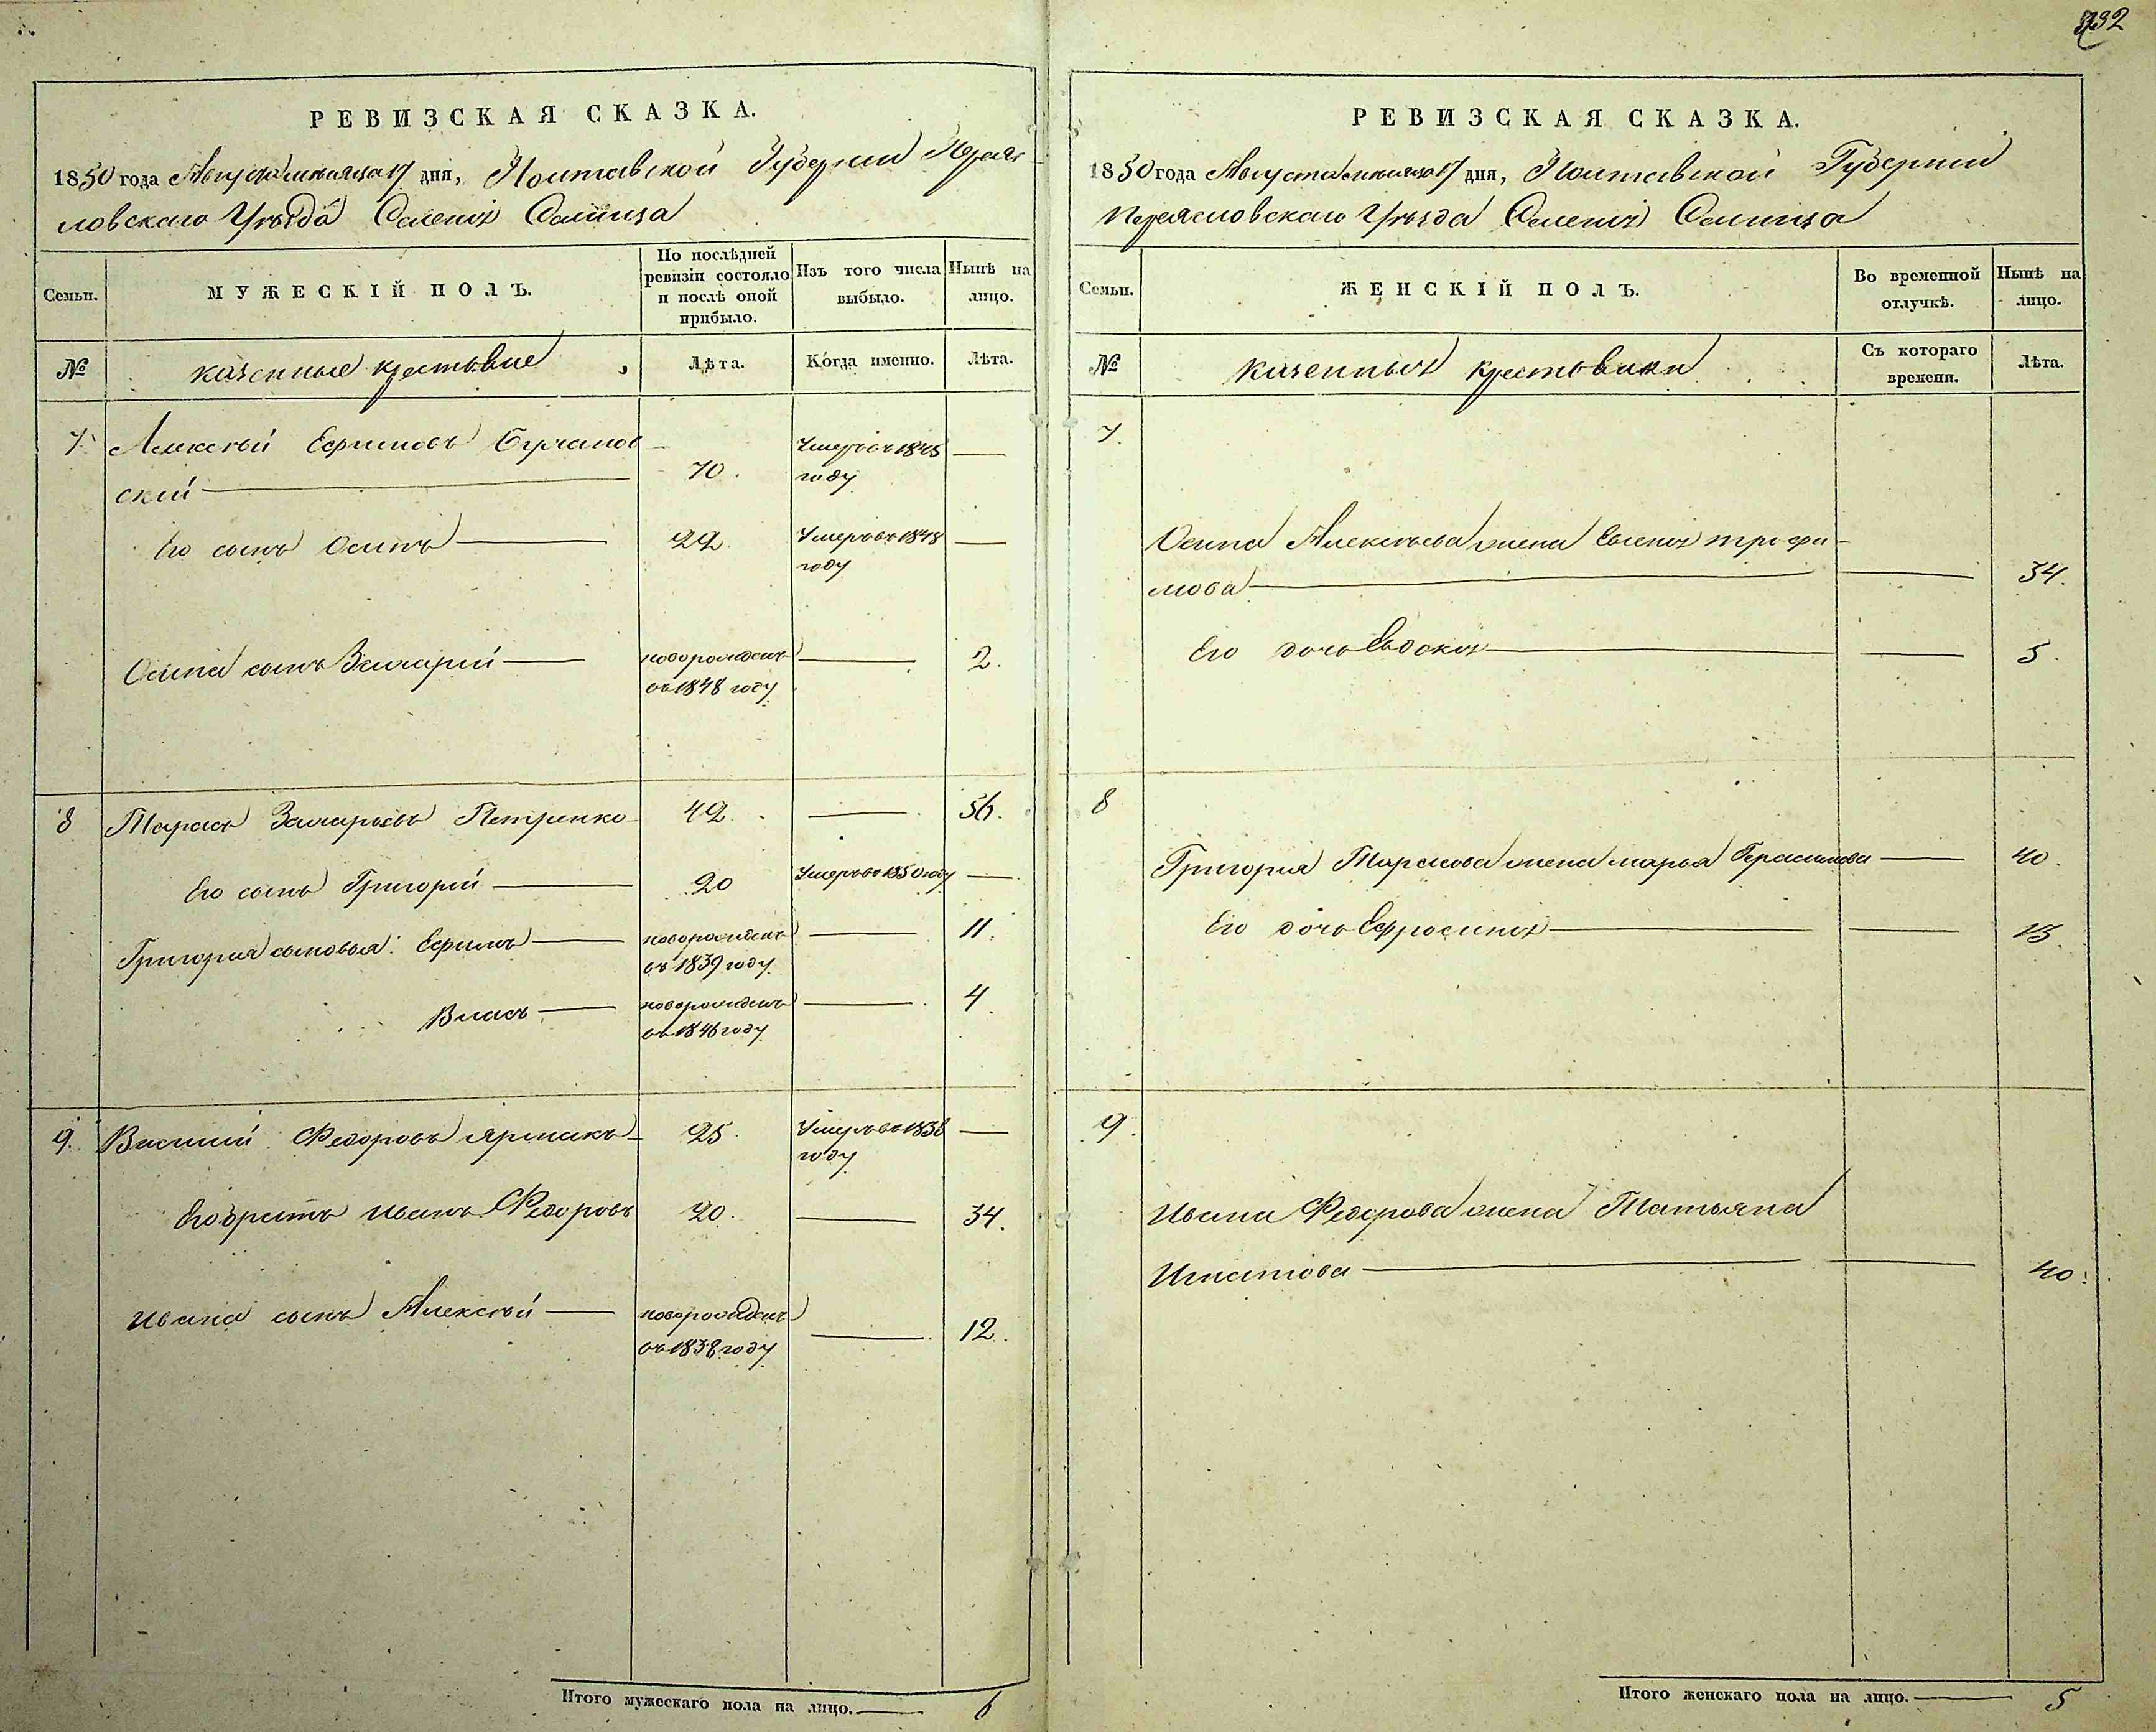 332
РЕВИЗСКАЯ СКАЗКА.
1850 года Августа месяца 17 дня, Полтавской Губернии Переяс
ловскаго Уезда Селенiя
Семьи.
МУЖЕСКІЙ ПОЛЪ.
По послѣдней ревизіи состояло и послѣ оной прибыло.
Изъ того числа выбыло.
Нынѣ на лицо.
№
казенные крестьяне
Лѣта.
Когда именно.
Лѣта.
7. Алексѣй Ефимовъ
скій 70. Умеръ въ 1845 году
Его сынъ Осипъ 22. Умеръ въ 1848 году
Осипа сынъ Захарій новорожденъ въ 1848 году 2.
8 Тарасъ Захарьевъ Петренко 42. 56.
Его сынъ Григорій 20 Умеръ въ 1850 году
Григорія сыновья: Ефимъ новорожденъ въ 1839 году 11.
Власъ новорожденъ въ 1846 году 4
9. Василий Федоровъ Ярмакъ 25. Умеръ въ 1838 году
Его братъ Иванъ Федоровъ 20. 34.
Ивана сынъ Алексѣй новорожденъ въ 1838 году 12.
Итого мужескаго пола на лицо. 6
РЕВИЗСКАЯ СКАЗКА.
1850 года Августа месяца 17 дня, Полтавской Губернии
Переясловскаго Уезда Селенiя
Семьи.
ЖЕНСКІЙ ПОЛЪ.
Во временной отлучкѣ.
Нынѣ на лицо.
№
казенныхъ крестьянки
Съ котораго времени.
Лѣта.
7.
Осипа Алексѣева жена Евгенiя Трофи
мова 34.
Его дочь Евдокiя 5.
8
Григорія Тарасова жена Марья Герасимова 40.
Его дочь Ефросинiя 15.
9.
Ивана Федорова жена Татьяна
Игнатова 40.
Итого женскаго пола на лицо. 5